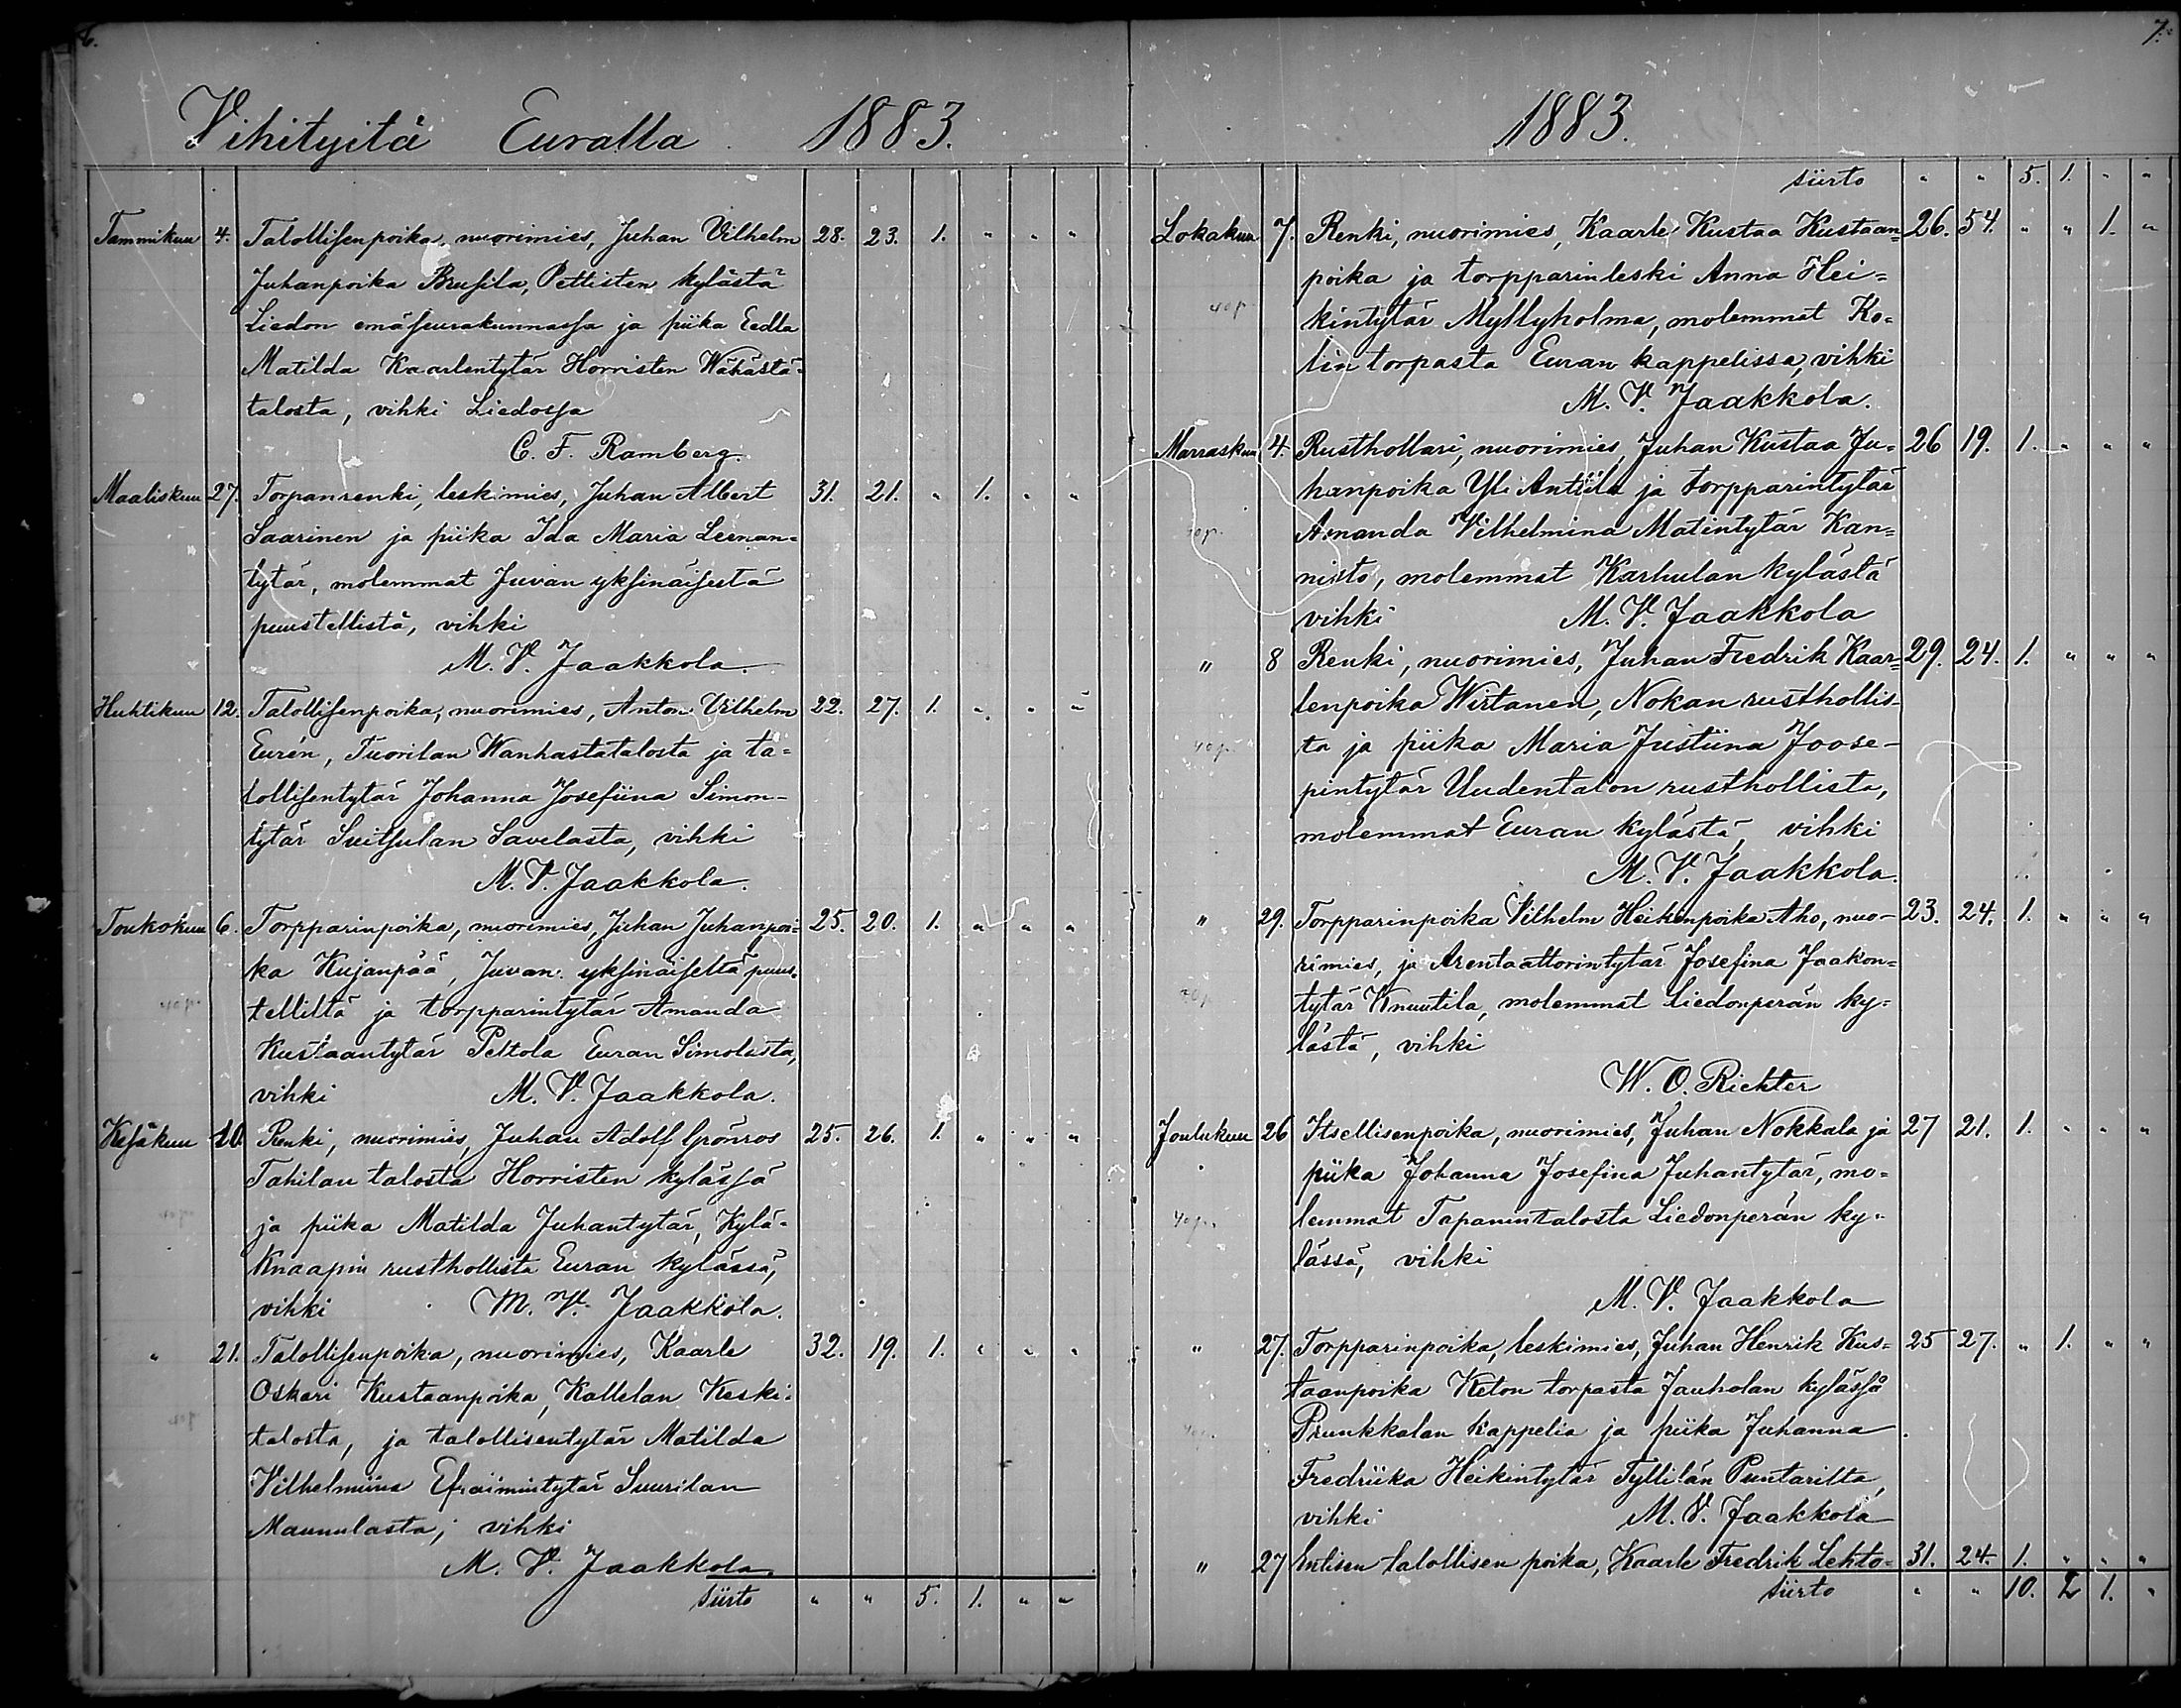 6.
Vihityitä Euralla 1883.
Tammikuu 4. Talollisenpoika, nuorimies, Juhan Vilhelm 28. 23. 1. " " "
Juhanpoika Brusila, Pettisten kylästä
Liedon emäseurakunnassa ja piika Eedla
Matilda Kaarlentytär Horristen Wähästä-
talosta, vihki Liedossa
C. F. Ramberg.
Maaliskuu 27. Torpanrenki, leskimies, Juhan Albert 31. 21. " 1. " "
Saarinen ja piika Ida Maria Leenan-
tytär, molemmat Juvan yksinäisestä
puustellistä, vihki
M. V. Jaakkola.
Huhtikuu 12. Talollisenpoika, nuorimies, Anton Vilhelm 22. 27. 1. " " "
Eurén, Tuorilan Wanhastatalosta ja ta-
lollisentytär Johanna Josefiina Simon-
tytär Suitsulan Savelasta, vihki
M. V. Jaakkola.
Toukokuu 6. Torpparinpoika, nuorimies, Juhan Juhanpoi- 25. 20. 1. " " "
ka Kujanpää, Juvan yksinäiseltä puus-
40 p. telliltä ja torpparintytär Amanda
Kustaantytär Peltola Euran Simolasta,
vihki M. V. Jaakkola.
Kesäkuu 10 Renki, nuorimies, Juhan Adolf Grönros 25. 26. 1. " " "
Tahilan talosta Horristen kylässä
ja piika Matilda Juhantytär, Kylä-
Knaapin rusthollista Euran kylässä,
vihki M. V. Jaakkola.
" 21. Talollisenpoika, nuorimies, Kaarle 32. 19. 1. " " "
Oskari Kustaanpoika, Kallelan Keski-
talosta, ja talollisentytär Matilda
Vilhelmiina Efraimintytär Suurilan
Maunulasta, vihki
M. V. Jaakkola.
siirto " " 5. 1. " "
7.
1883.
siirto " " 5. 1. " "
Lokakuu 7. Renki, nuorimies, Kaarle Kustaa Kustaan- 26. 54. " " 1. "
poika ja torpparinleski Anna Hei-
40 p. kintytär Myllyholma, molemmat Ko-
lin torpasta Euran kappelissa, vihki
M. V. Jaakkola.
Marraskuu 4. Rusthollari, nuorimies, Juhan Kustaa Ju- 26 19. 1. " " "
hanpoika Yli Anttila ja torpparintytär
40 p. Amanda Vilhelmina Matintytär Kan-
nisto, molemmat Karhulan kylästä
vihki M. V. Jaakkola
" 8 Renki, nuorimies, Juhan Fredrik Kaar- 29. 24. 1. " " "
lenpoika Wirtanen, Nokan rusthollis-
40 p. ta ja piika Maria Justiina Joose-
pintytär Uudentalon rusthollista,
molemmat Euran kylästä, vihki
M. V. Jaakkola.
" 29. Torpparinpoika Vilhelm Heikinpoika Aho, nuo- 23. 24. 1. " " "
rimies, ja Arentaattorintytär Josefina Jaakon-
40 p. tytär Knuutila, molemmat Liedonperän ky-
lästä, vihki
W. O. Richter
Joulukuu 26 Itsellisenpoika, nuorimies, Juhan Nokkala ja 27 21. 1. " " "
piika Johanna Josefina Juhantytär, mo-
40 p. lemmat Tapanintalosta Liedonperän ky-
lässä, vihki
M. V. Jaakkola
" 27. Torpparinpoika, leskimies, Juhan Henrik Kus- 25 27. " 1. " "
taanpoika Keton torpasta Jauholan kylässä
40 p. Prunkkalan kappelia ja piika Juhanna
Fredriika Heikintytär Tyllilän Puntarilta,
vihki M. V. Jaakkola
" 27 talollisen poika, Kaarle Fredrik Lehto- 31. 24. 1. " " "
siirto " " 10. 2 1. "